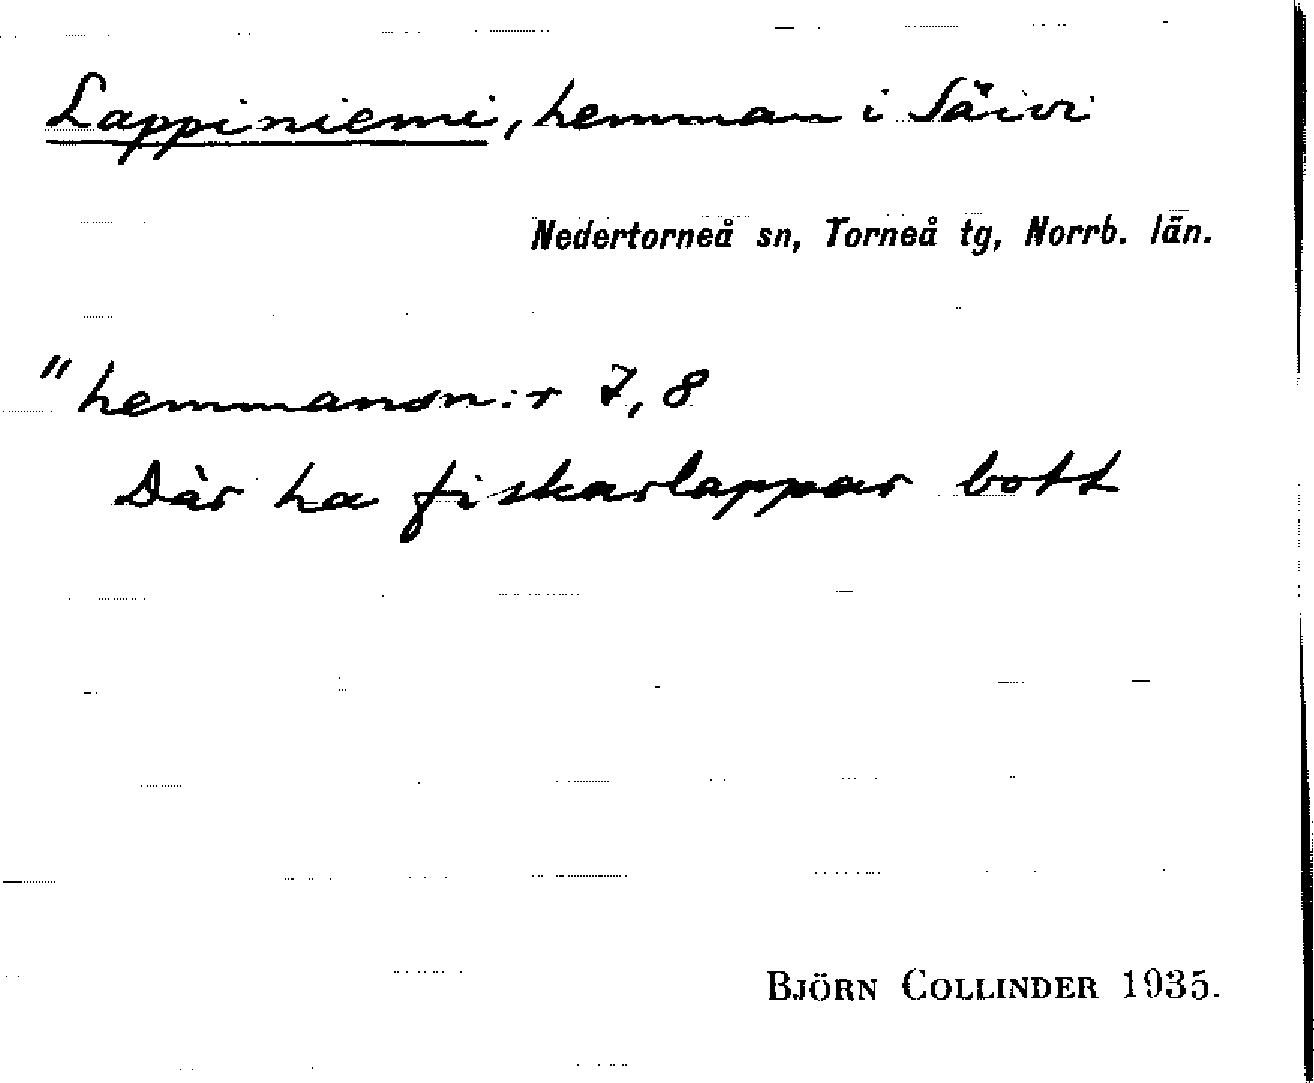 Lappiniemi, hemman i Säivi
Nedertorneå sn, Torneå tg, Norrb. län.
" hemmansn:r 7, 8
Där ha fiskarlappar bott
BJÖRN COLLINDER 1935.